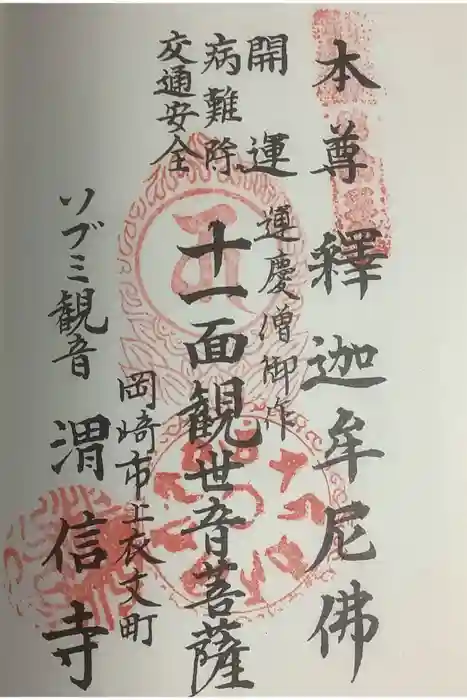 本尊 釋迦牟尼佛
開運
病難除
交通安全
運慶僧御作
十一面観世音菩薩
岡崎市上衣文町
ソブミ観音 渭信寺